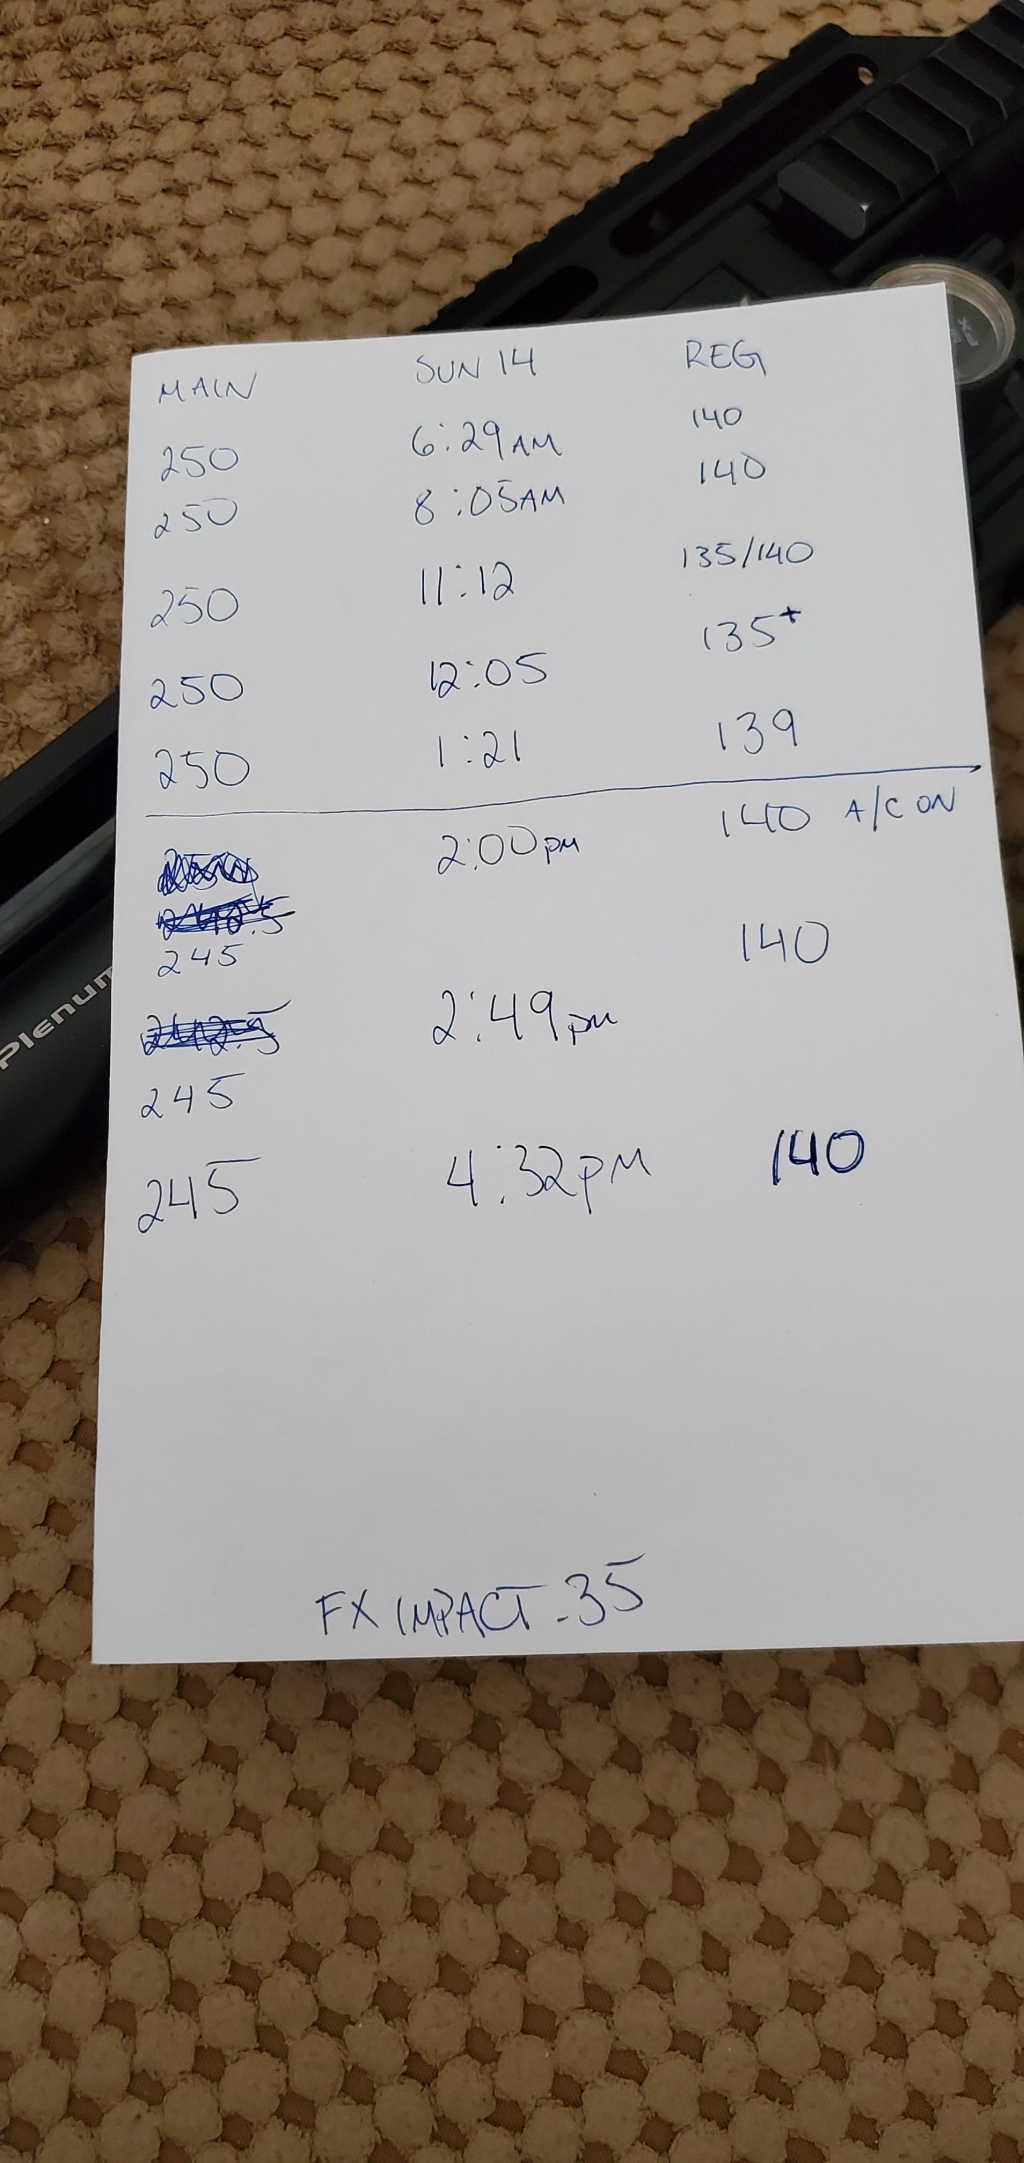 MAIN SUN 14 REG
250 6:29 AM 140
250 8:05 AM 140
250 11:12 135/140
250 12:05 135+
250 1:21 139
2:00 pm 140 A/C ON
242.5
245 140
242.5 2:49 pm
245
245 4:32 PM 140
FX IMPACT .35
Plenum